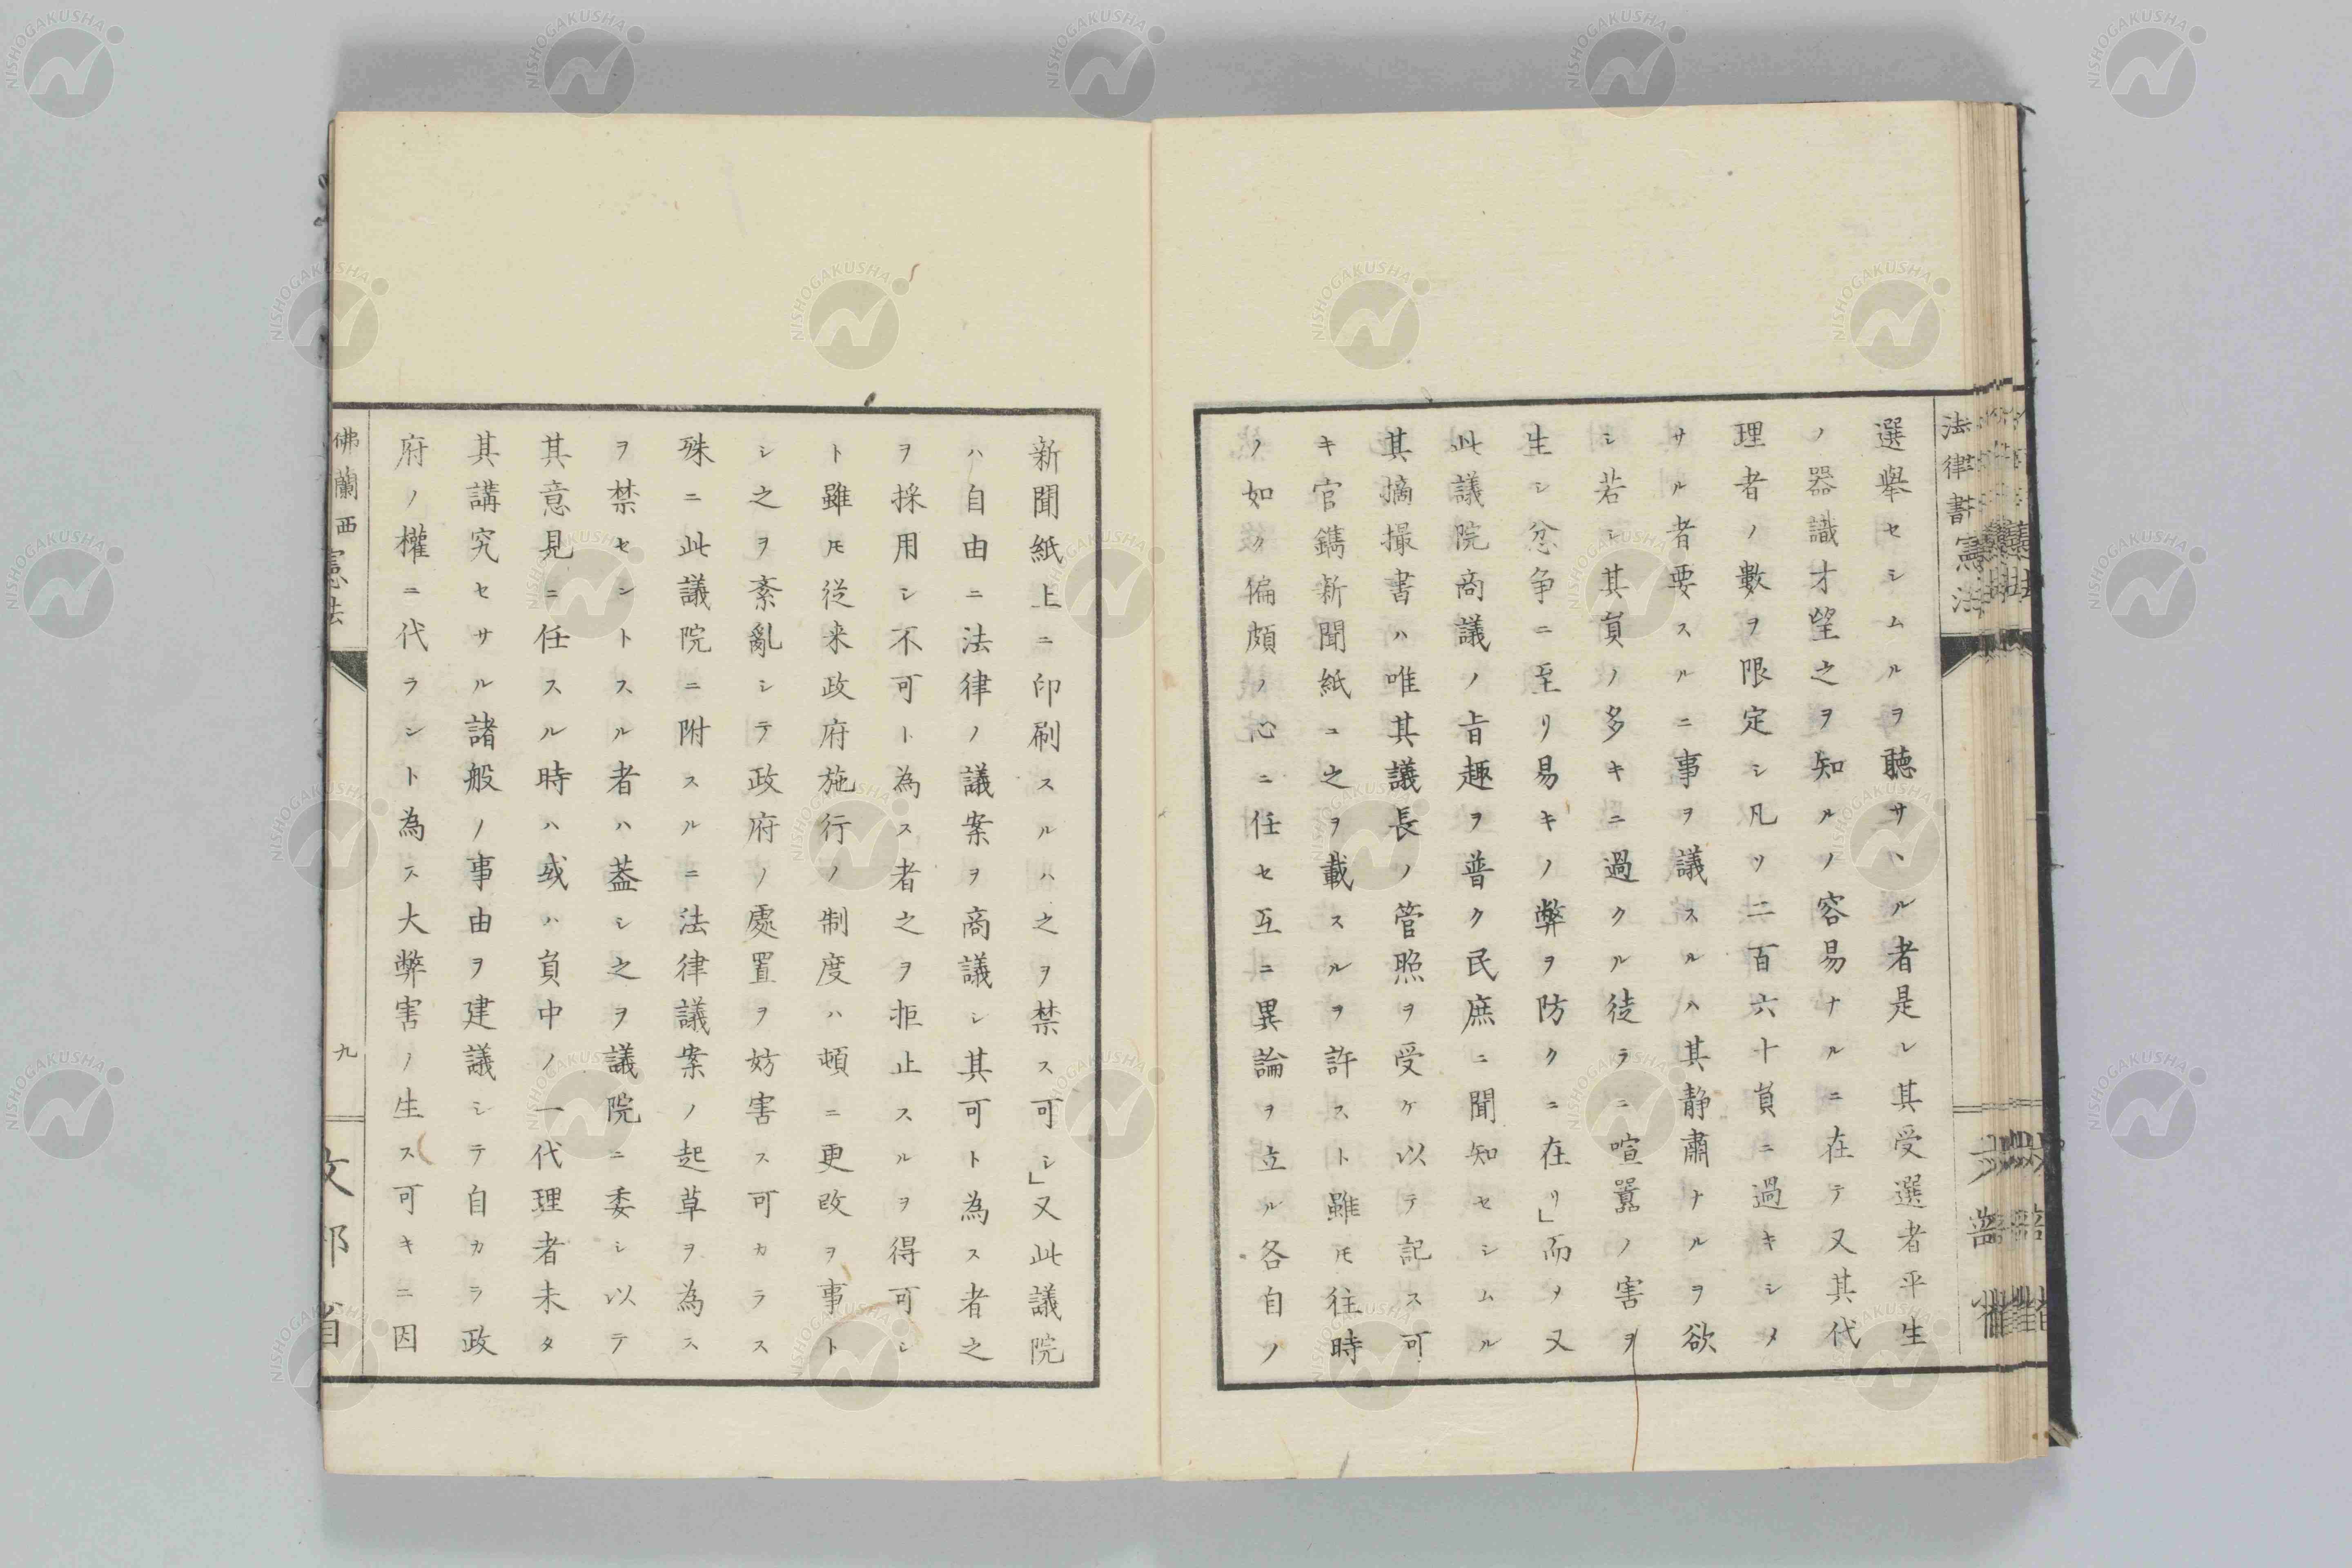 法律書 憲法
選擧セシムルヲ聽サヽル者是レ其受選者平生
ノ器識才望之ヲ知ルノ容易ナルニ在テ又其代
理者ノ數ヲ限定シ凡ソ二百六十員ニ過キシメ
サル者要スルニ事ヲ議スルハ其静肅ナルヲ欲
シ若シ其員ノ多キニ過クル徒ラニ喧囂ノ害ヲ
生シ忿争ニ至リ易キノ弊ヲ防クニ在リ」而ノ又
此議院商議ノ旨趣ヲ普ク民庶ニ聞知セシムル
其摘撮書ハ唯其議長ノ管照ヲ受ケ以テ記ス可
キ官鐫新聞紙ニ之ヲ載スルヲ許スト雖𪜈往時
ノ如ク偏頗ノ心ニ任セ互ニ異論ヲ立ル各自ノ
新聞紙上ニ印刷スルハ之ヲ禁ス可シ」又此議院
ハ自由ニ法律ノ議案ヲ商議シ其可ト為ス者之
ヲ採用シ不可ト為ス者之ヲ拒止スルヲ得可シ
ト雖𪜈従来政府施行ノ制度ハ頓ニ更改ヲ事ト
シ之ヲ紊亂シテ政府ノ處置ヲ妨害ス可カラス
殊ニ此議院ニ附スルニ法律議案ノ起草ヲ為ス
ヲ禁セシトスル者ハ葢シ之ヲ議院ニ委シ以テ
其意見ニ任スル時ハ或ハ員中ノ一代理者未タ
其講究セサル諸般ノ事由ヲ建議シテ自カラ政
府ノ權ニ代ラント為ス大弊害ノ生ス可キニ因
佛蘭西 憲法 九 文部省
NISHOGAKUSHA